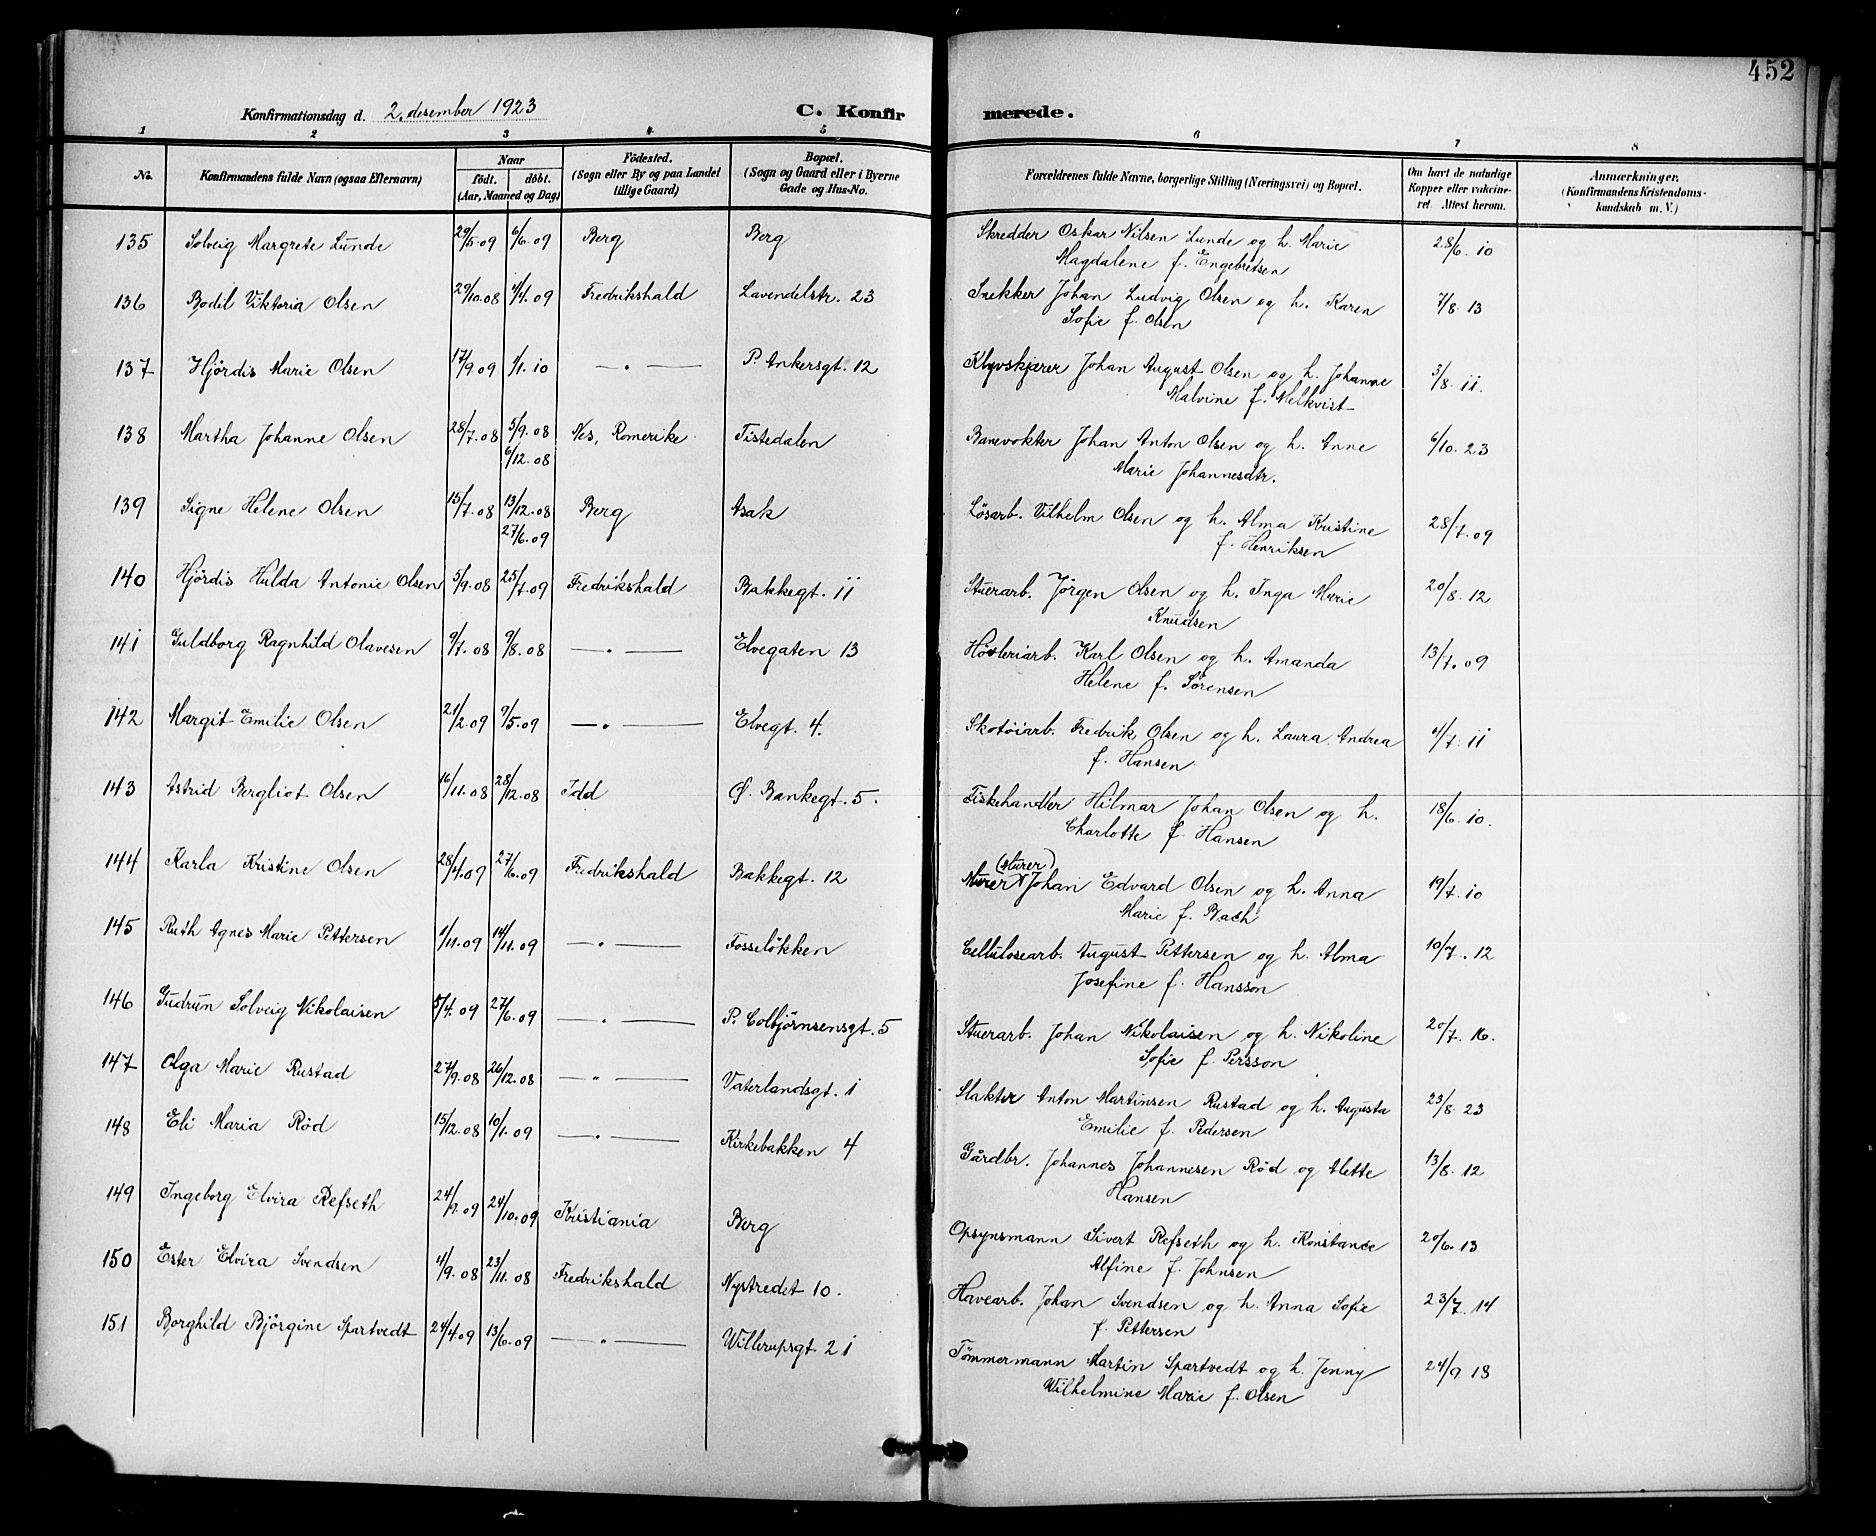 452
Konfirmationsdag d. 2. desember 1923 C. Konfirmerede.
1 2 3 4 5 6 7 8
No. Konfirmandens fulde Navn (ogsaa Efternavn) Naar födt. döbt. (Aar, Maaned og Dag) Födested. (Sogn eller By og paa Landet tillige Gaard) Bopæl. (Sogn og Gaard eller i Byerne Gade og Hus-No. Forældrenes fulde Navne, borgerlige Stilling (Næringsvei) og Bopæl. Om havt de naturlige Kopper eller vakcineret. Attest herom. Anmærkninger. (Konfirmandens Kristendomskundskab m. V.)
135 Solveig Margrete Lunde 29/5.09 6/6.09 Berg Berg Skredder Oskar Nilsen Lunde og h. Marie 28/6. 10
Magdalene f. Engebretsen
136 Bodil Viktoria Olsen 29/10.08 1/4.09 Fredrikshald Lavendelstr. 23 Snekker Johan Ludvig Olsen og h. Karen 7/8. 13
Sofie f. Olsen
137 Hjördis Marie Olsen 17/9.09 1/1.10 — " — P. Ankersgt. 12 Kløvskjærer Johan August Olsen og h. Johanne 3/8. 11.
Malvine f. Melkvist
138 Martha Johanne Olsen 28/7.08 5/9.08 Nes, Romerike Tistedalen Banevokter Johan Anton Olsen og h. Anne 6/10. 23
6/12.08 Marie Johannesdtr.
139 Signe Helene Olsen 15/7.08 13/12.08 Berg Asak Lösarb. Vilhelm Olsen og h. Alma Kristine 28/7.09
27/6.09 f. Henriksen
140 Hjördis Hulda Antonie Olsen 5/9.08 25/7.09 Fredrikshald Bakkegt. 11 Stuerarb. Jörgen Olsen og h. Inga Marie 20/8. 12
Knudsen
141 Guldborg Ragnhild Olavesen 9/7.08 9/8.08 — " — Elvegaten 13 Hövleriarb. Karl Olsen og h. Amanda 13/7.09
Helene f. Sörensen
142 Margit Emilie Olsen 21/2.09 9/5.09 — " — Elvegt. 4. Skotöiarb. Fredrik Olsen og h. Laura Andrea 4/7. 11
f. Hansen
143 Astrid Bergliot Olsen 16/11.08 28/12.08 Idd Ö. Bankegt. 5. Fiskehandler Hilmar Johan Olsen og h. 18/6. 10.
Charlotte f. Hansen
144 Karla Kristine Olsen 28/4.09 27/6.09 Fredrikshald Bakkegt. 12 Murer (Murer) Johan Edvard Olsen og h. Anna 19/7. 10
Marie f. Bach
145 Ruth Agnes Marie Pettersen 1/11.09 14/11.09 — " — Fosseløkken Cellulosearb. August Pettersen og h. Alma 10/7. 12
Josefine f. Hansson
146 Gudrun Solveig Nikolaisen 5/4.09 27/6.09 — " — P. Colbjörnsensgt. 5 Stuerarb. Johan Nikolaisen og h. Nikoline 20/7. 16.
Sofie f. Persson
147 Olga Marie Rustad 27/9.08 26/12.08 — " — Vaterlandsgt. 1 Slakter Anton Martinsen Rustad og h. Augusta 23/8. 23
Emilie f. Pedersen
148 Eli Maria Röd 15/12.08 10/1.09 — " — Kirkebakken 4 Gårdbr. Johannes Johannesen Röd og Alette 13/8. 12
Hansen
149 Ingeborg Elvira Refseth 24/9.09 24/10.09 Kristiania Berg Opsynsmann Sivert Refseth og h. Konstance 20/6. 13
Alfine f. Johnsen
150 Ester Elvira Svendsen 4/9.08 23/11.08 Fredrikshald Nystredet 10. Havearb. Johan Svendsen og h. Anna Sofie 23/7. 14
f. Pettersen
151 Borghild Björgine Spartvedt 24/4.09 13/6.09 — " — Willerupsgt. 21 Tömmermann Martin Spartvedt og h. Jenny 24/9 18
Wilhelmine Marie f. Olsen